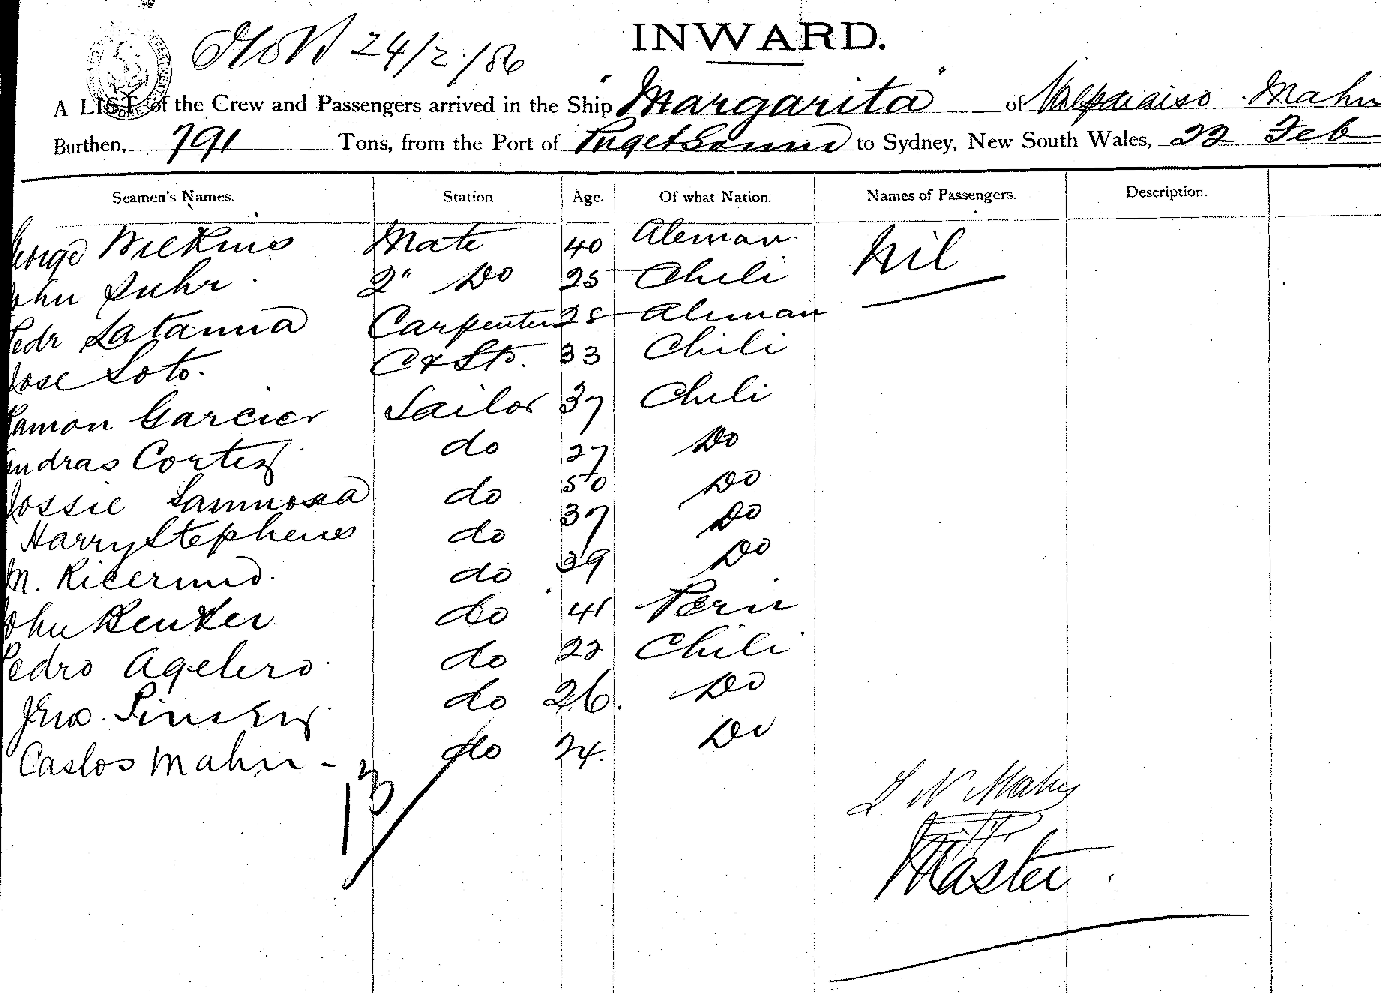 24/2/86
INWARD.
A LIST of the Crew and Passengers arrived in the Ship "Margarita" of Valparaiso Mahn
Burthen, 791 Tons, from the Port of Puget Sound to Sydney, New South Wales, 22 Feb
Seamen's Names. Station Age. Of what Nation. Names of Passengers. Description.
George Wilkins Mate 40 Aleman Nil
John Suhr 2" Do 25 Chili
Pedr Carpenter 28 Aleman
Jose Soto. C & St. 33 Chili
Ramon Garcier Sailor 37 Chili
Andras Cortez do 27 Do
Jossie do 50 Do
Harry Stephens do 37 Do
M. do 39 Do
John do 41 Peru
Pedro Agelero do 22 Chili
do 26. Do
Caslos Mahn - do 24. Do
13
Mahn
Master